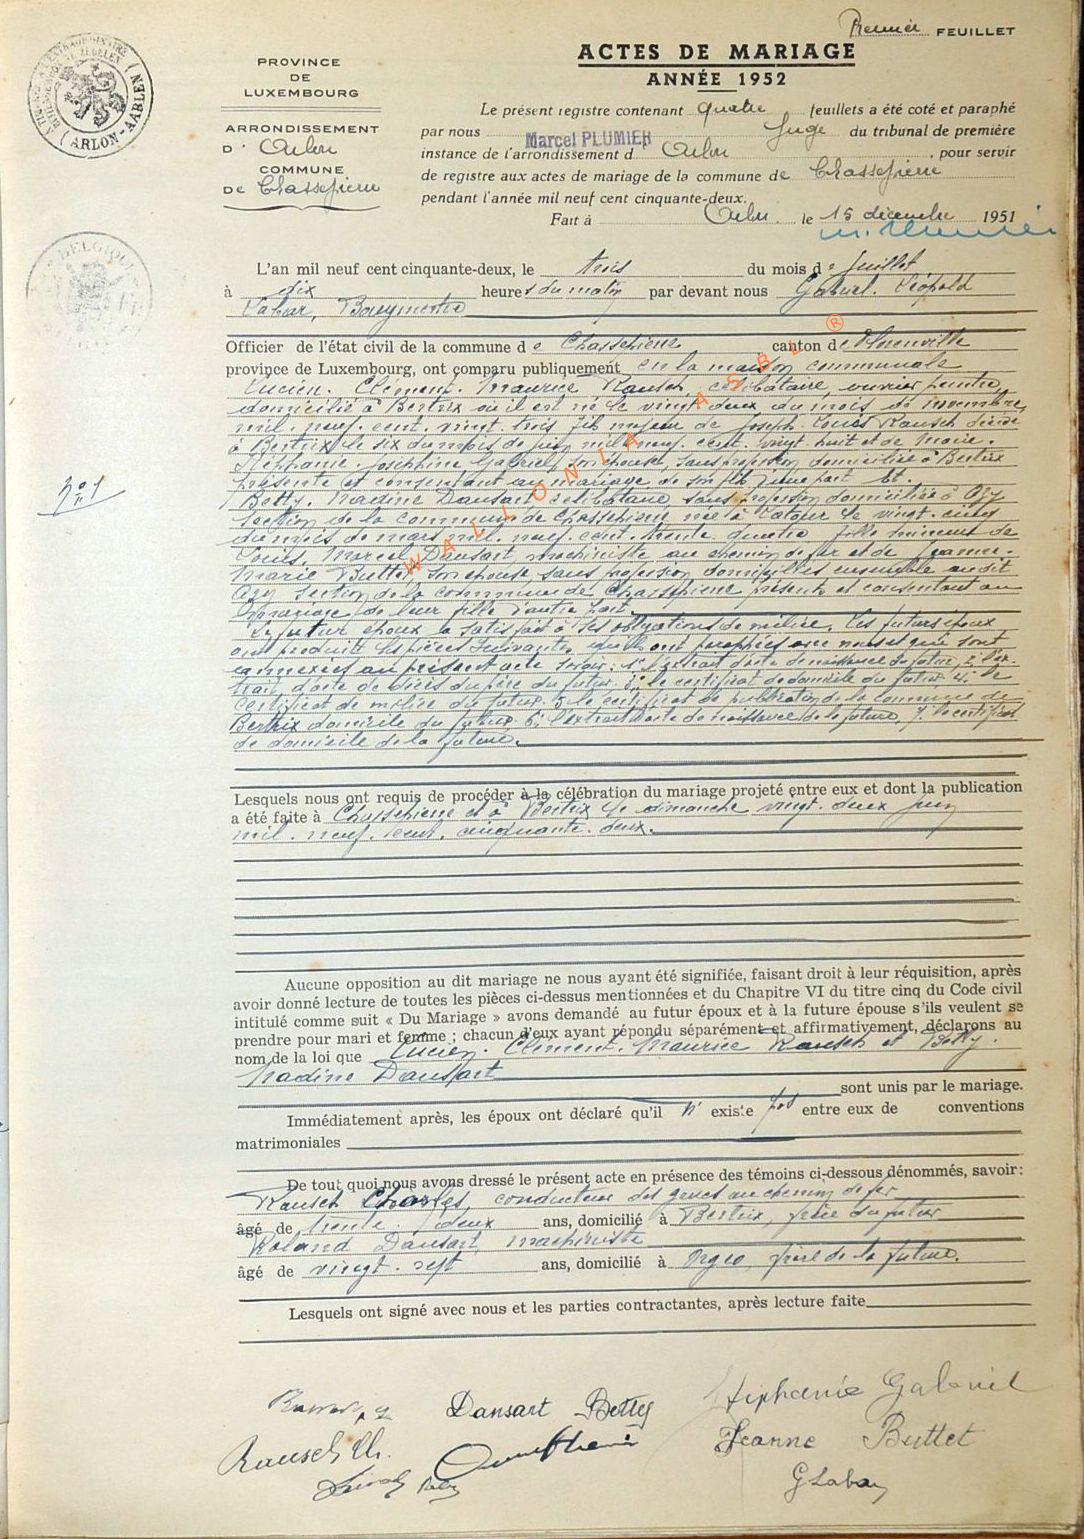 Premier FEUILLET
ACTES DE MARIAGE
ANNÉE 1952
PROVINCE
DE
LUXEMBOURG
ARRONDISSEMENT
D' Arlon
COMMUNE
DE Chassepierre
ARLON-AARLEN
BELGIQUE
Le présent registre contenant quatre feuillets a été coté et paraphé
par nous Marcel PLUMIER Juge du tribunal de première
instance de l'arrondissement d' Arlon, pour servir
de registre aux actes de mariage de la commune de Chassepierre
pendant l'année mil neuf cent cinquante-deux.
Fait à Arlon le 15 décembre 1951
L'an mil neuf cent cinquante-deux, le trois du mois de juillet
à dix heures du matin par devant nous Gabriel. Léopold
Labar, Bourgmestre
Officier de l'état civil de la commune de Chassepierre canton de Florenville
province de Luxembourg, ont comparu publiquement en la maison communale
Lucien. Clément. Maurice Rausch, célibataire, ouvrier peintre,
domicilié à Bertrix où il est né le vingt deux du mois de novembre
mil. neuf. cent. vingt. trois fils majeur de Joseph. Louis Rausch décédé
à Bertrix le six du mois de juin mil. neuf. cent. vingt. huit et de Marie.
Stéphanie. Joséphine Gabriel, son épouse, sans profession, domiciliée à Bertrix
présente et consentant au mariage de son fils d'une part Et.
Betty. Nadine Dansart célibataire sans profession domiciliée à Azy
section de la commune de Chassepierre née à Latour le vingt. cinq
du mois de mars mil. neuf. cent. trente. quatre fille mineure de
Louis. Marcel Dansart, machiniste au chemin de fer et de Jeanne.
Marie Buttet, son épouse, sans profession domiciliés ensemble au dit
Azy section de la commune de Chassepierre présents et consentant au
mariage de leur fille d'autre part.
Le futur époux a satisfait à ses obligations de milice. Les futurs époux
ont produit les pièces suivantes qu'ils ont paraphées avec nous et qui sont
annexées au présent acte savoir: 1° l'extrait d'acte de naissance du futur, 2° l'ex-
trait d'acte de décès du père du futur. 3° le certificat de domicile du futur. 4° le
certificat de milice du futur. 5° le certificat de publication de la commune de
Bertrix domicile du futur. 6° l'extrait d'acte de naissance de la future, 7° le certificat
de domicile de la future.
WALLONIA ASBL ®
Lesquels nous ont requis de procéder à la célébration du mariage projeté entre eux et dont la publication
a été faite à Chassepierre et à Bertrix le dimanche vingt. deux juin
mil. neuf. cent. cinquante. deux.
Aucune opposition au dit mariage ne nous ayant été signifiée, faisant droit à leur réquisition, après
avoir donné lecture de toutes les pièces ci-dessus mentionnées et du Chapitre VI du titre cinq du Code civil
intitulé comme suit « Du Mariage » avons demandé au futur époux et à la future épouse s'ils veulent se
prendre pour mari et femme ; chacun d'eux ayant répondu séparément et affirmativement, déclarons au
nom de la loi que Lucien. Clément. Maurice Rausch et Betty.
Nadine Dansart
sont unis par le mariage.
Immédiatement après, les époux ont déclaré qu'il n' existe pas entre eux de conventions
matrimoniales
De tout quoi nous avons dressé le présent acte en présence des témoins ci-dessous dénommés, savoir:
Rausch Charles, conducteur des gares au chemin de fer
âgé de trente. deux ans, domicilié à Bertrix, frère du futur
Roland Dansart, machiniste
âgé de vingt. sept ans, domicilié à Orgeo, frère de la future.
Lesquels ont signé avec nous et les parties contractantes, après lecture faite
Dansart Betty
Stéphanie Gabriel
Rausch Ch.
Jeanne Buttet
G Labar